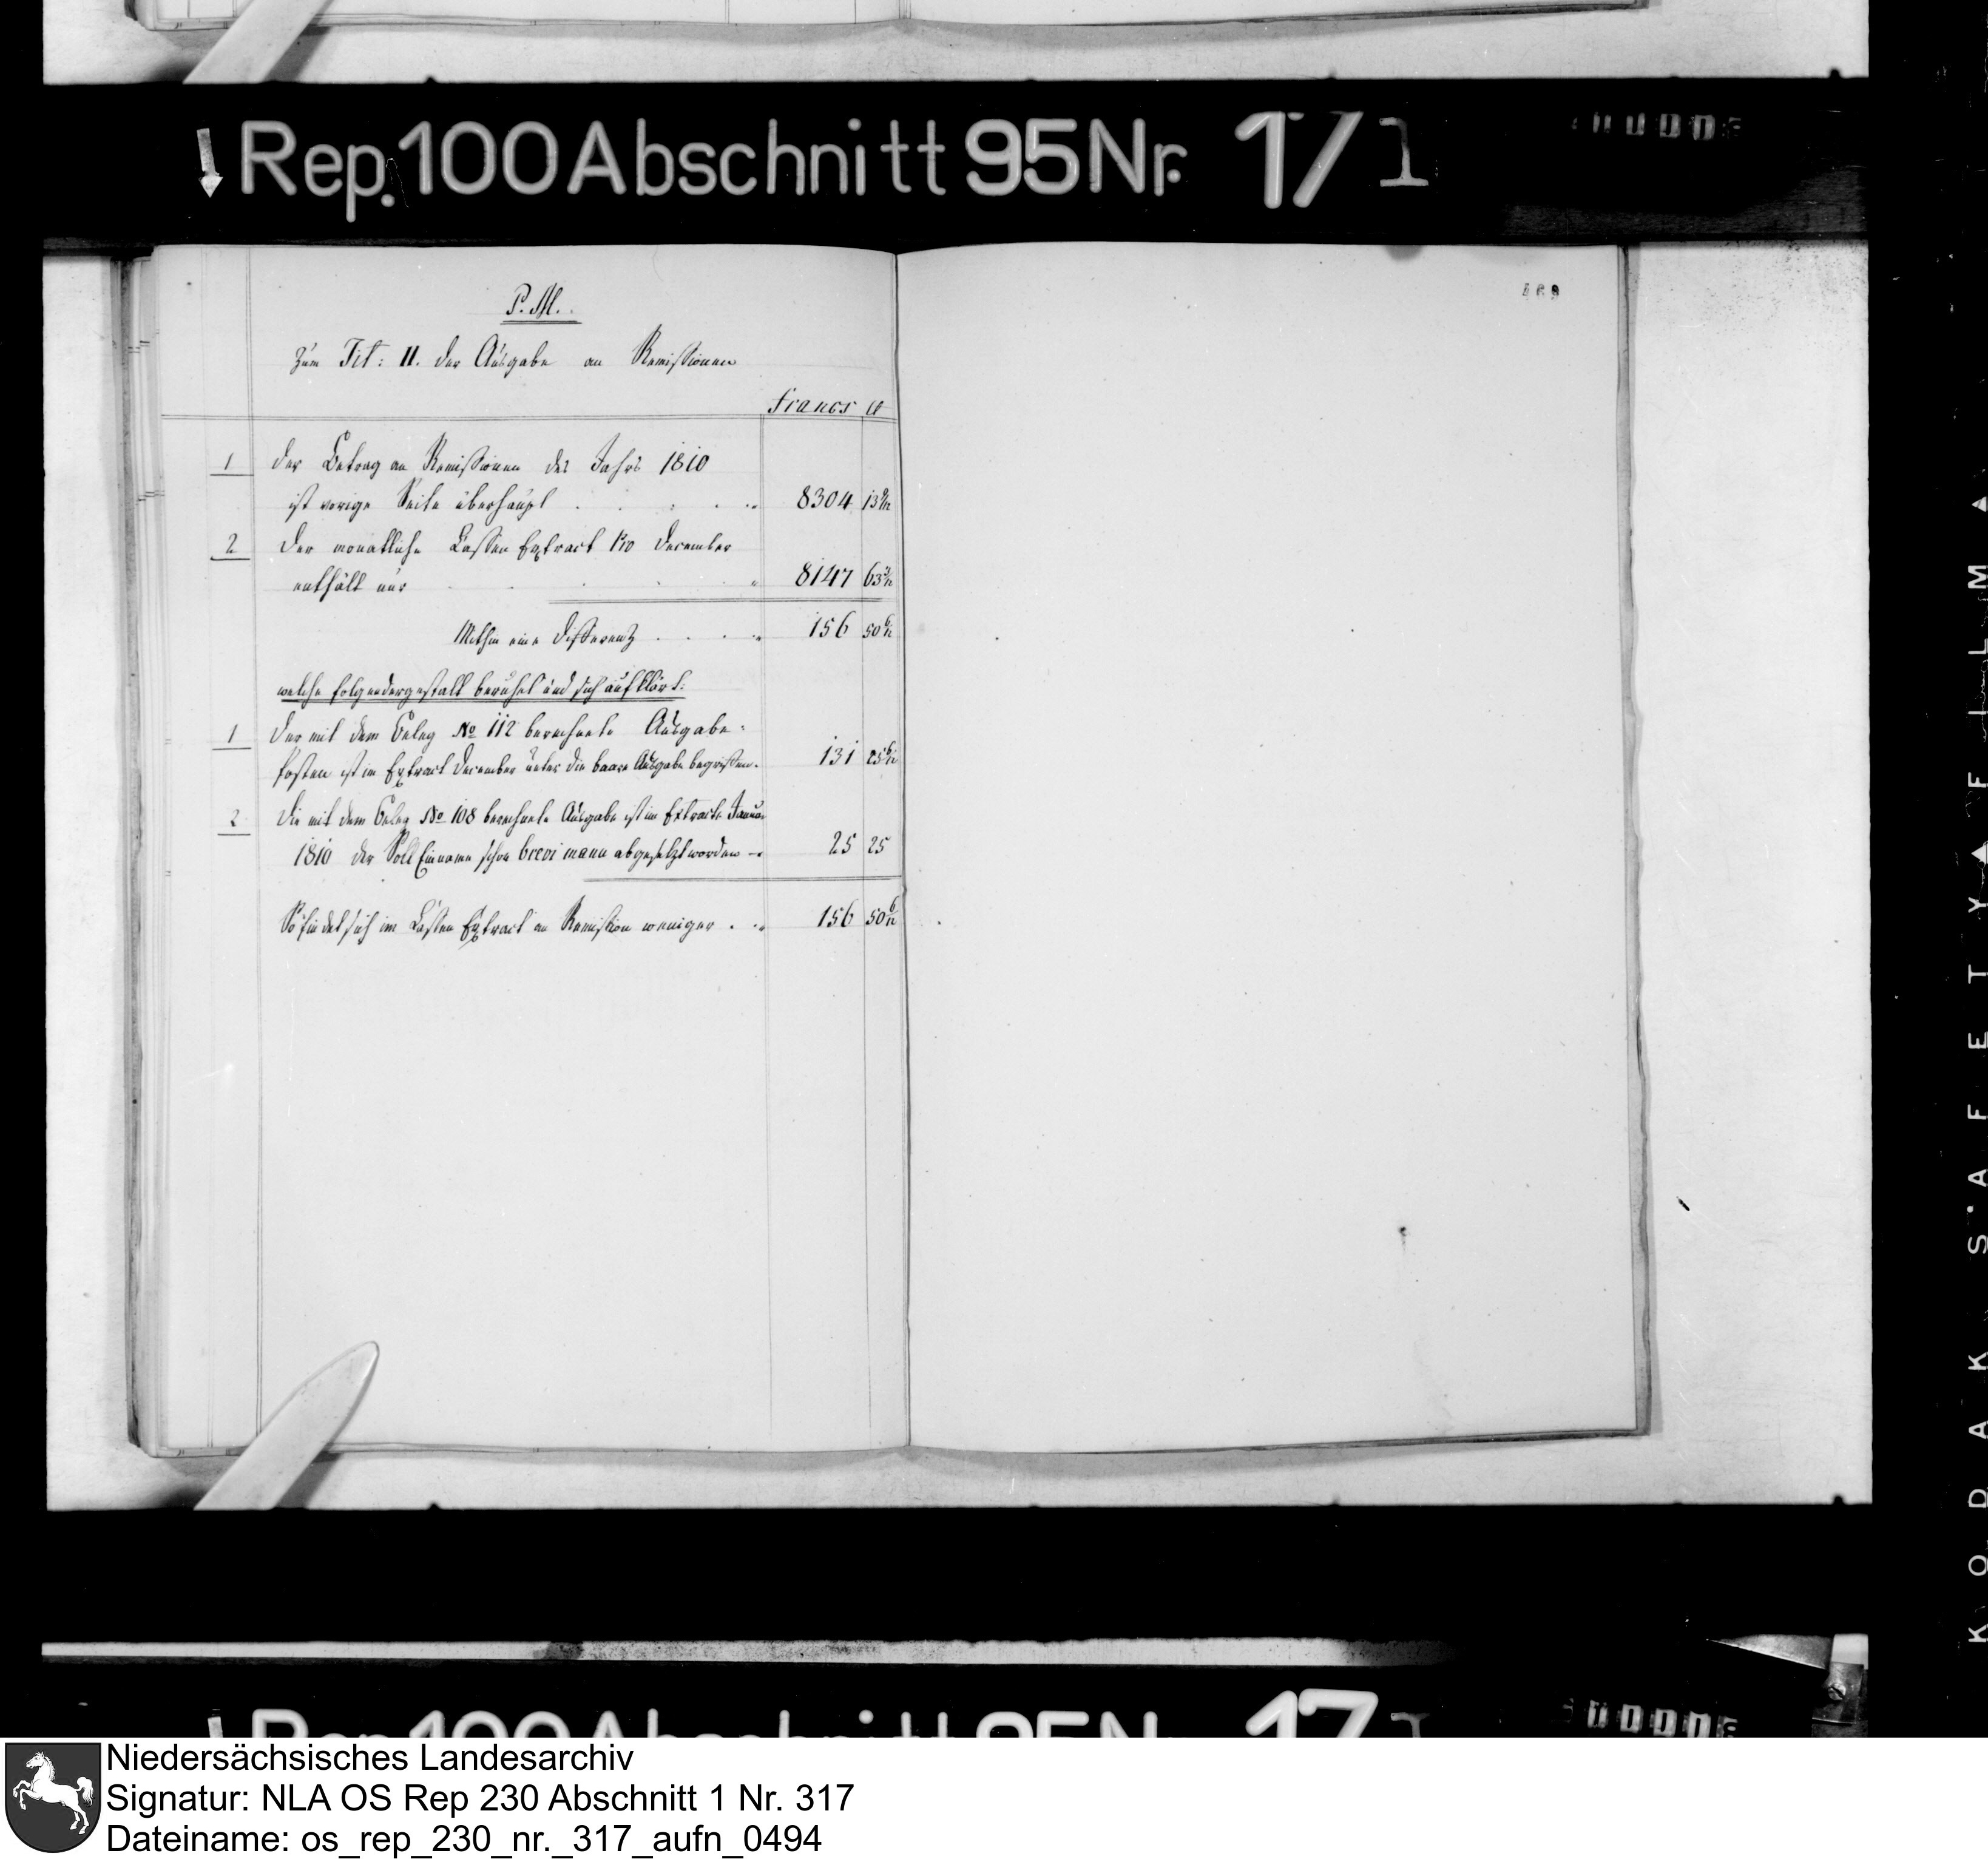 Rep. 100 Abschnitt 95 Nr. 17 1
469
P. M.
Zum Tit: II. der Ausgabe an Remissionen
Francs C
1 Der Betrag an Remissionen des Jahrs 1810
ist vorige Seite überhaupt . . . . 8304 13 9/12
2 Der monatliche Cassen Extract pro December
enthält nur . . . 8147 63 3/12
Mithin eine Differenz . . . . 156 50 6/12
welche folgendergestalt beruhet und sich aufklärt:
1 Der mit dem Beleg No 112 berechnete Ausgabe-
posten ist im Extract December unter die baare Ausgabe begriffen. 131 25 6/12
2 Die mit dem Beleg No 108 berechnete Ausgabe ist im Extracte Januar
1810 der Soll Einname schon brevi manu abgesetzt worden 25 25
So findet sich im Cassen Extract an Remission weniger . . 156 50 6/12
KODAK SAFETY FILM
Rep. 100 Abschnitt 95 N 17 1
Niedersächsisches Landesarchiv
Signatur: NLA OS Rep 230 Abschnitt 1 Nr. 317
Dateiname: os_rep_230_nr._317_aufn_0494